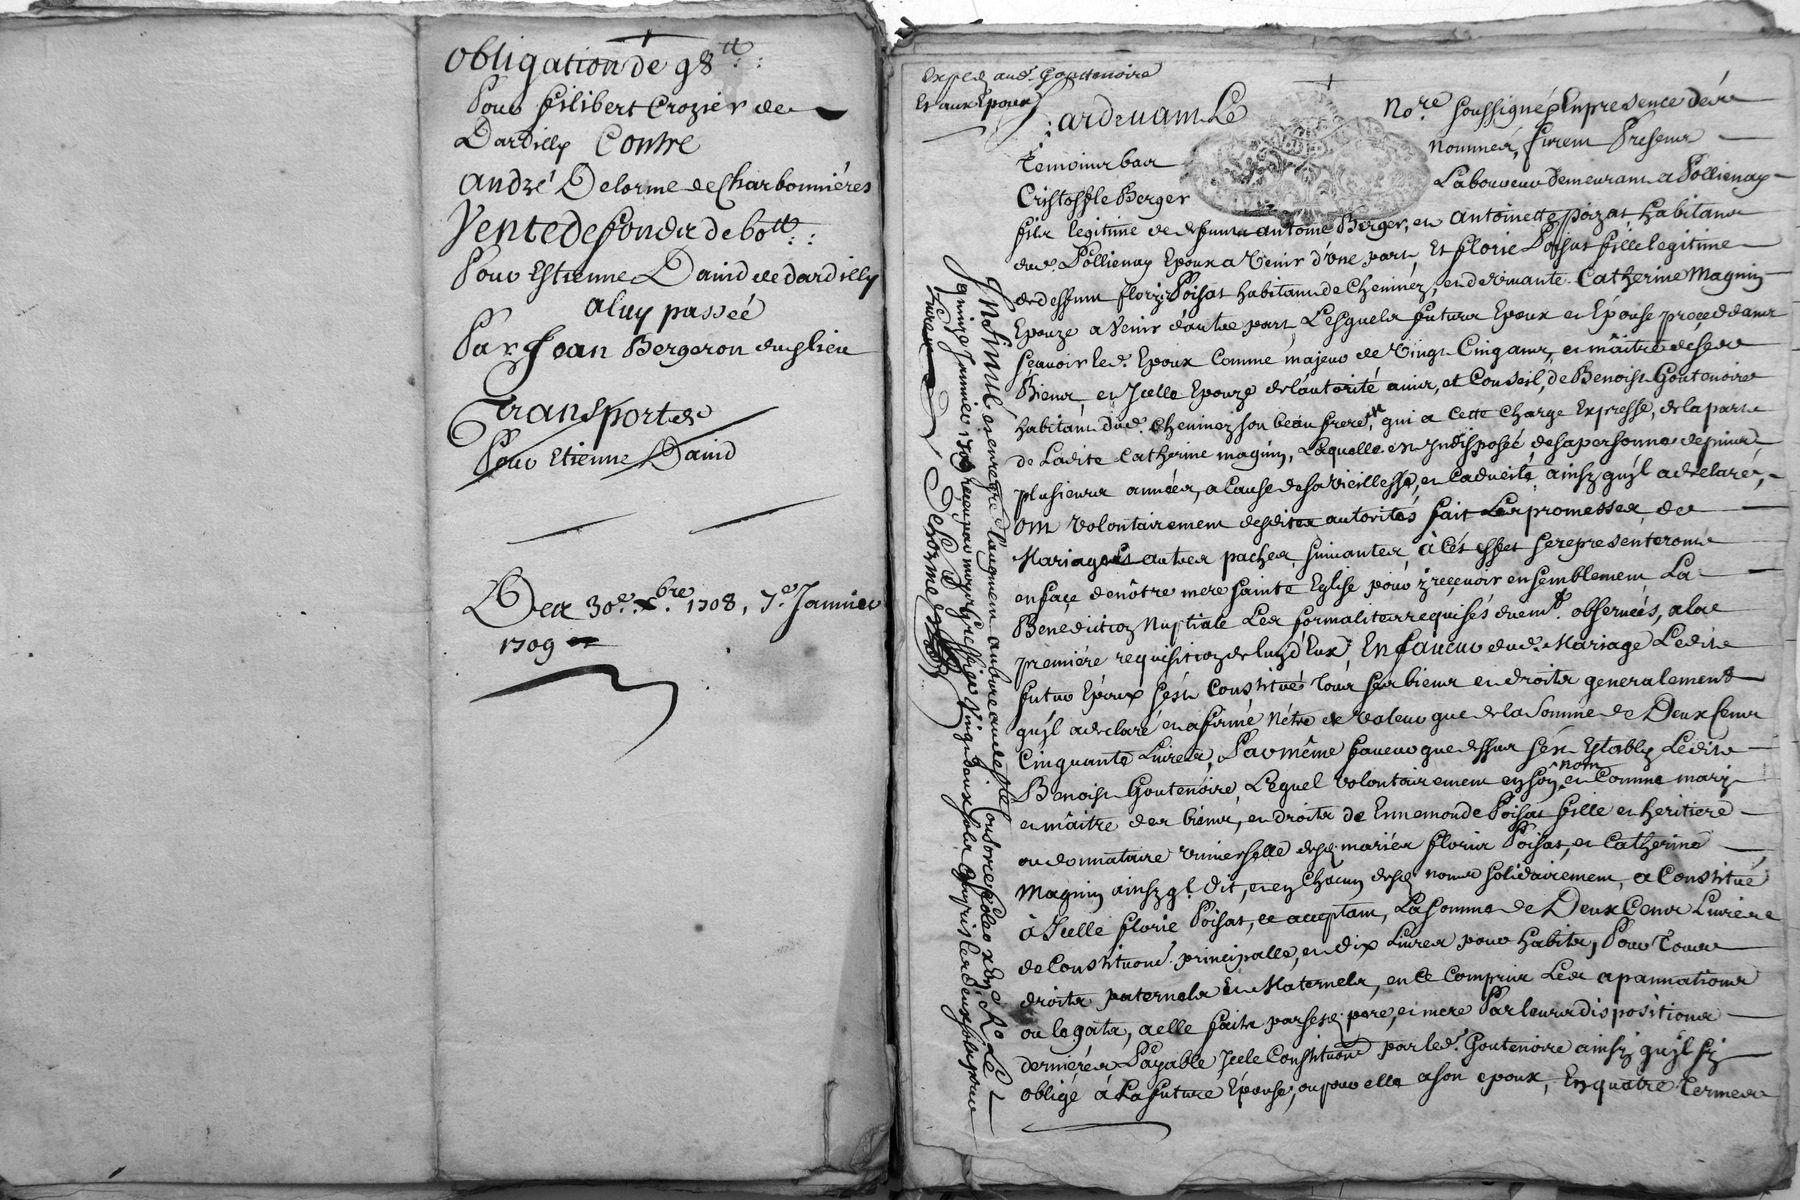 obligation de 98tt
Pour Filibert Crozier de
Dardilly Contre
André Delorme de Charbonniéres
Vente de fonds de 60tt
Pour Estienne David de dardilly
a luy passée
Par Joan Bergeron dud lieu
Transport de
Pour Etienne David
Des 30e xbre 1708, 7e Janvier
1709
Exped aud. Goutenoire
Et aux Epoux
Pardevant Le Nore soussigné, En presence des
temoins bas nommés, furent Presens
Cristophle Berger Laboureur demeurant a Pollienay
fils legitime de deffunt antoine Berger, et antoinette poizat habitans
dud. Pollienay Epoux a Venir d'une part, Et florie Poisat fille legitime
de deffunt floris Poisat habitant de Cheminéz, et de vivante Catherine Magnin
Epouze a Venir d'autre part, Lesquels futurs Epoux et Epouse proceddans
sçavoir led. Epoux Comme majeur de Vingt Cinq ans, et mâitre de ses
Biens, et Icelle Epouze de l'autorité avis, et Conseil, de Benoist Goutenoire
habitant dud. Cheminez son beau frere, qui a Cette Charge Expresse, de la part
de Ladite Catherine magnin, Laquelle est Indisposée de sa personne depuis
plusieurs années, a Cause de sa vieillesse, et Caducité ainsy qu'il a declaré,
Ont volontairement desdites autorités fait Les promesses de
Mariage et autres paches suivantes, à Cés effet se representeront
en façe de nôtre mere Sainte Eglise, pour y reçevoir ensemblement La
Benediction Nuptiale Les formalites requises duemt. observées, a la
premiére requisition de l'un d'Eux, En faveur dud. Mariage Ledit
futur Epoux s'ést Constitué tous ses biens et droits generalement
qu'il a declaré et afirmé n'étre de Valeur que de la Somme de Deux Cens
Cinquante Livres, Par même faveur que dessus s'ést Estably Ledit
Benoist Goutenoire, Lequel Volontairement en son nom et Comme mary
et mâitre des biens, et droits de Ennemonde Poisat fille et heritiere
ou donnataire Universelle desd. mariés floris Poisat, et Catherine
Magnin ainsy ql. dit, et en Chacun desd. noms solidairement, a Constitué
à Icelle florie Poisat, ce acceptant, La Somme de Deux Cens Livres
de Constitution principalle, et dix Livres pour habits, Pour tous
droits paternels Et Maternels, en Ce Compris Les apannations
ou legats, a elle faits par sesd. pere, et mere Par leurs dispositions
derniéres Payable Icele Constitution par led. Goutenoire ainsy qu'il s'y
obligé à La future Epouse, ou pour elle a son epoux, En quatre termes